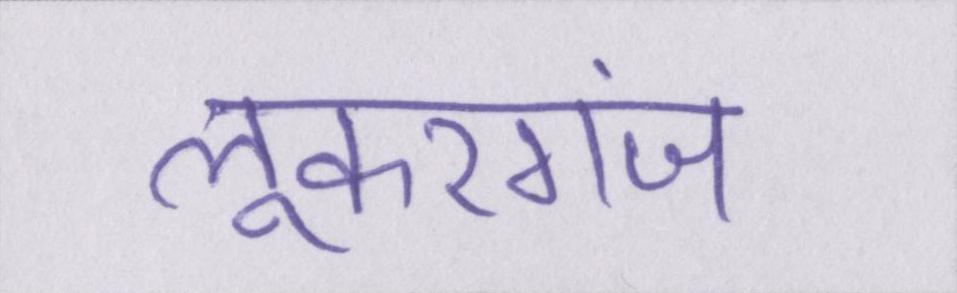 लूकरगंज